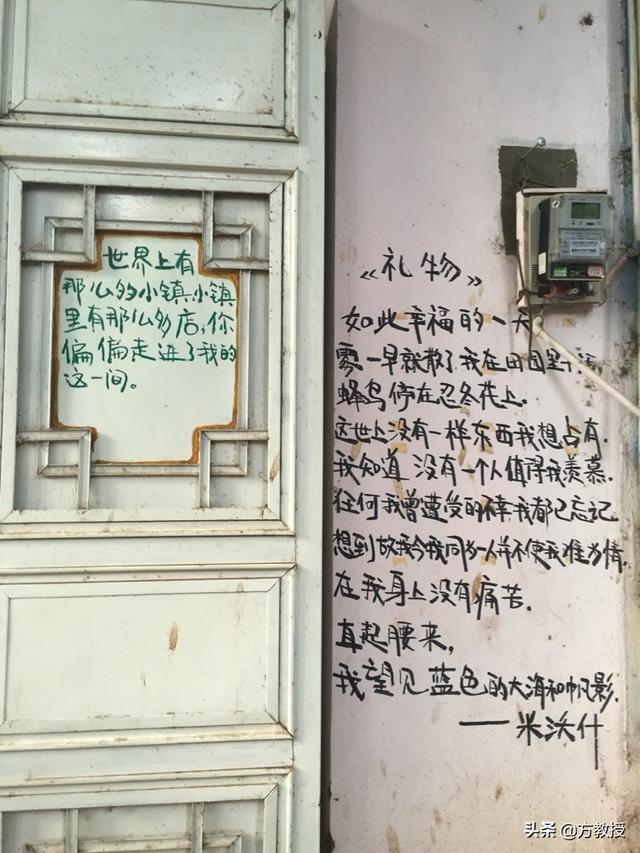 世界上有
那么多小镇,小镇
里有那么多店,你
偏偏走进了我的
这一间。
《礼物》
如此幸福的一天
雾一早就散了,我在田园里干活
蜂鸟停在忍冬花上.
这世上没有一样东西我想占有.
我知道 没有一个人值得我羡慕.
任何我曾遭受的不幸,我都已忘记
想到故我今我同为一人并不使我难为情.
在我身上没有痛苦.
直起腰来,
我望见蓝色的大海和帆影.
——米沃什
头条 @方教授